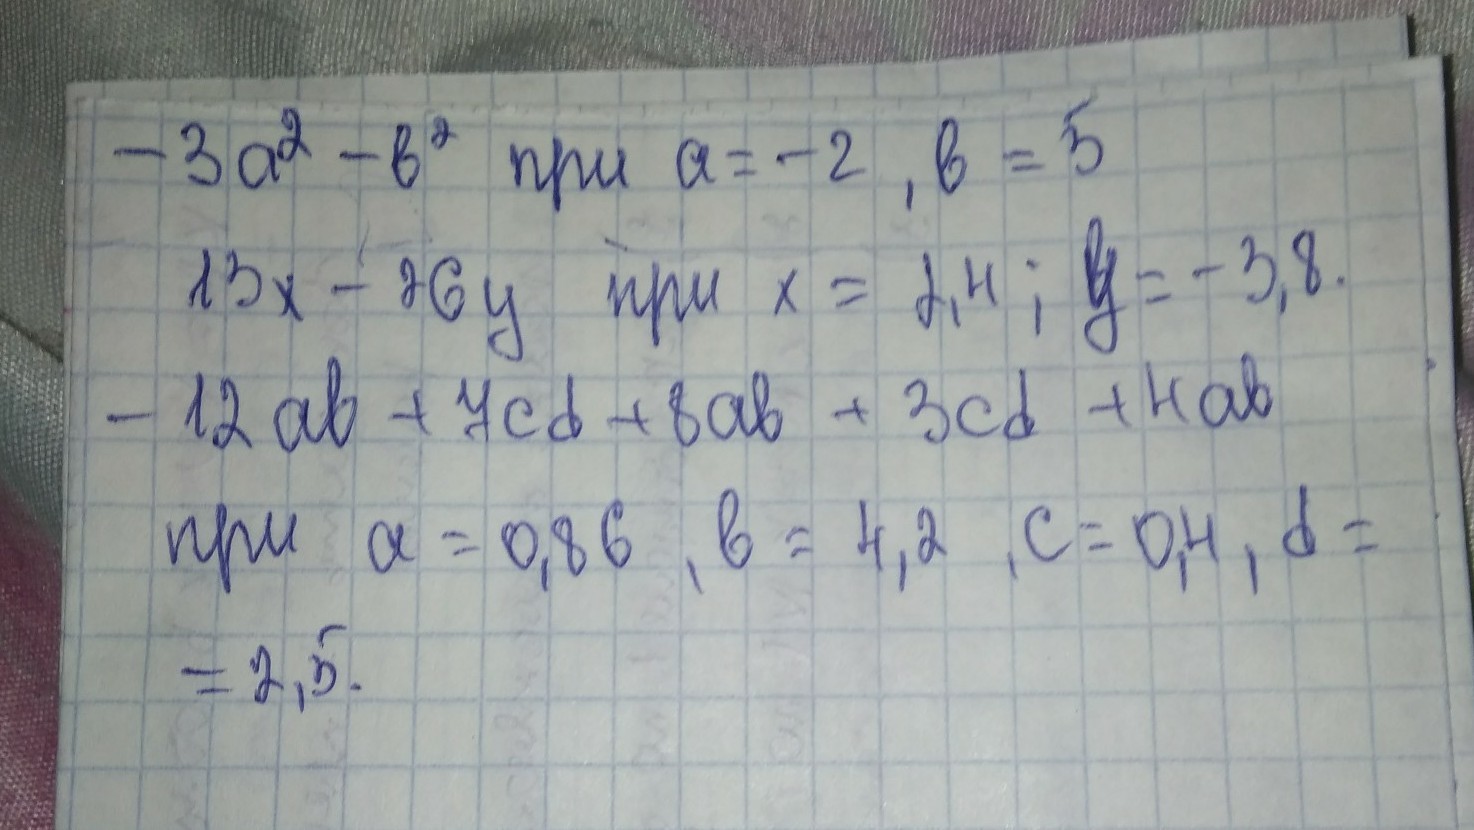 -3a² - b² при a = -2, b = 5
13x - 26y при x = 2,4; y = -3,8.
-12ab + 7cd + 8ab + 3cd + 4ab
при a = 0,86, b = 4,2, c = 0,4, d =
= 2,5.